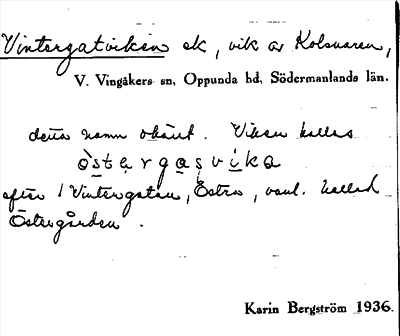 Vintergatviken ek, vik av Kolsnaren,
V. Vingåkers sn, Oppunda hd, Södermanlands län.
detta namn okänt. Viken kallas
ö̀stergasvika
efter 1 Vintergatan, Östra, vanl. kallad
Östergården.
Karin Bergström 1936.